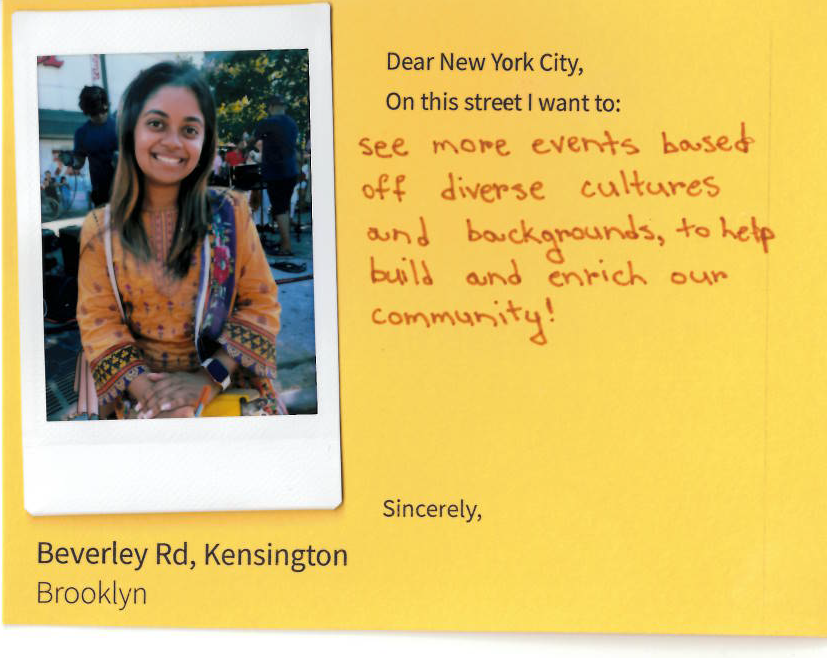 Dear New York City,
On this street I want to:
see more events based
off diverse cultures
and backgrounds, to help
build and enrich our
community!
Sincerely,
Beverley Rd, Kensington
Brooklyn